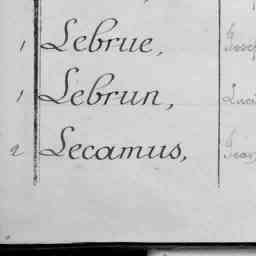 1 Lebrue,
1 Lebrun,
2 Lecamus,